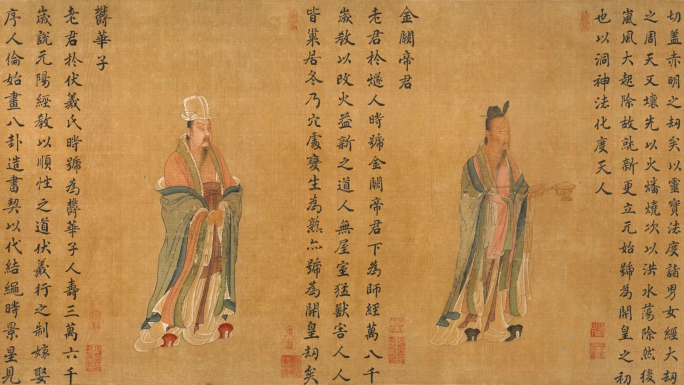 切盖赤明之劫矣以靈寶法度諸男女經大劫
之周天又壞先以火燔燒次以洪水蕩除然後
嵐風大起除故就新更立元始號為開皇之初
也以洞神法化度天人
金闕帝君
老君於燧人時號金闕帝君下為師經萬八千
歲教以改火益新之道人無屋室猛獸害人人
皆巢居冬乃穴處變生為熟亦號為開皇劫矣
鬱華子
老君於伏羲氏時號為鬱華子人壽三萬六千
歲說元陽經教以順性之道伏羲行之制嫁娶
序人倫始畫八卦造書契以代結繩時景星見